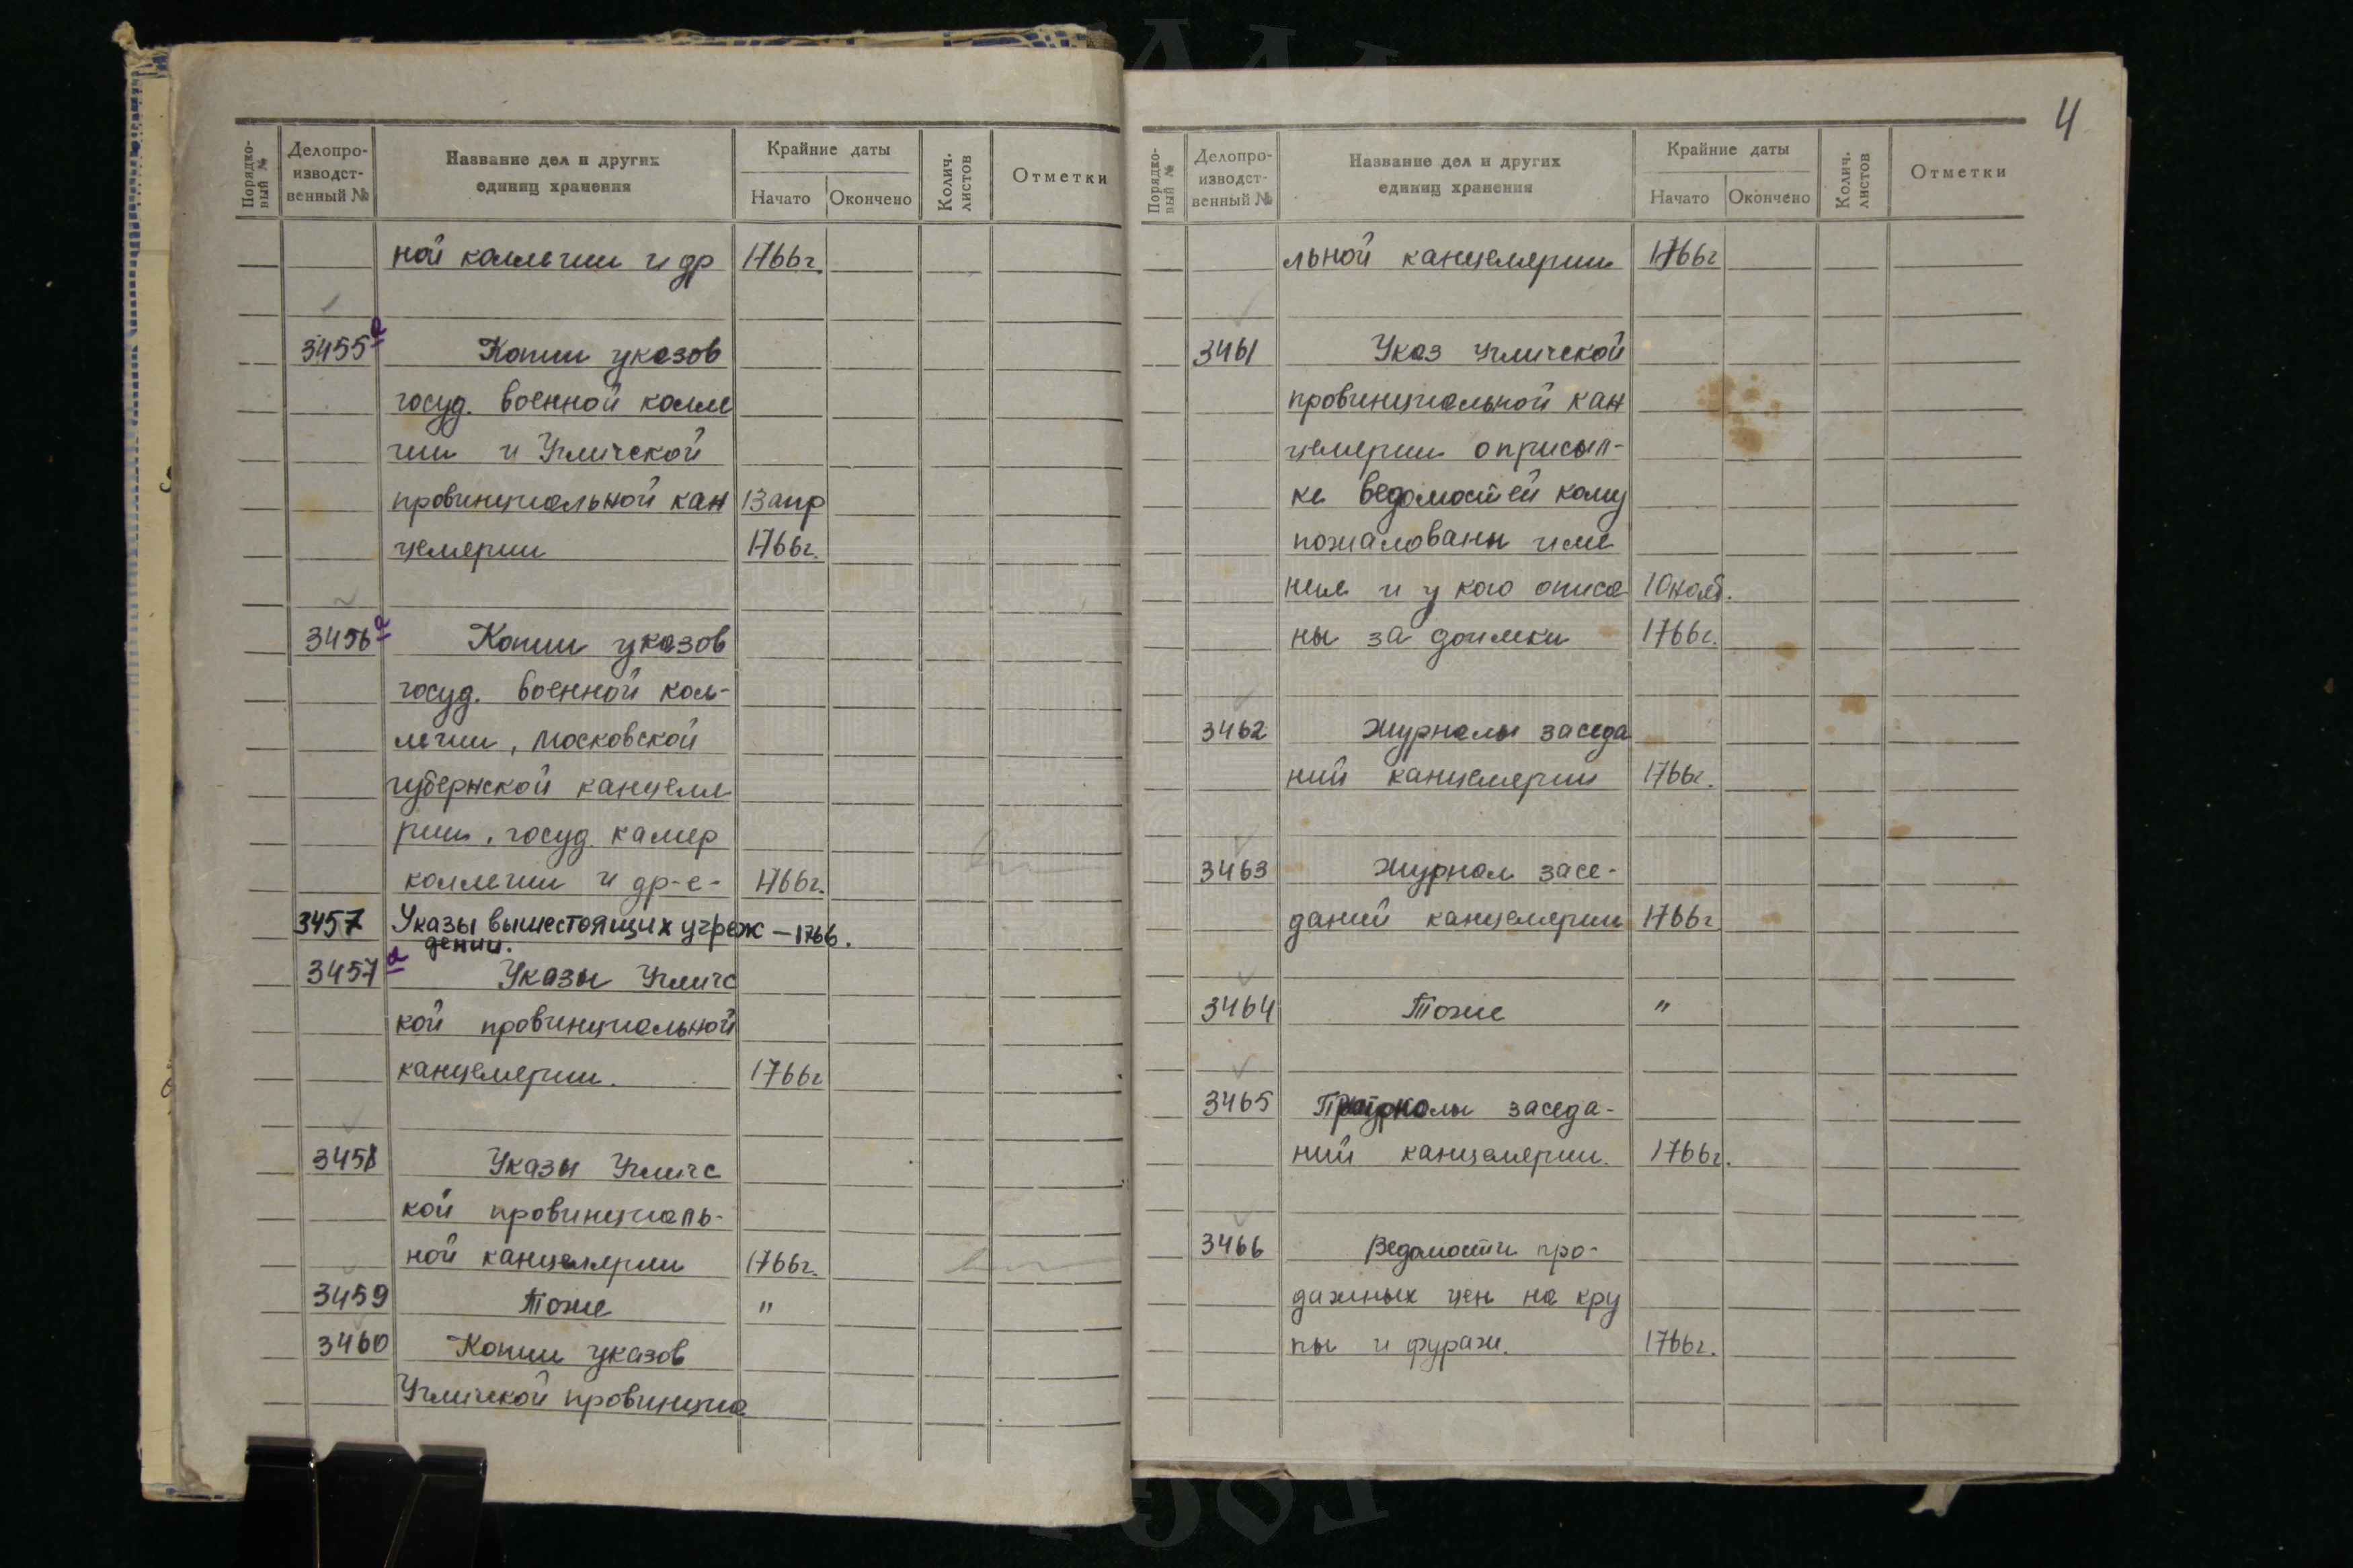 Порядко-
вый №
Делопро-
изводст-
венный №
Название дел и других
единиц хранения
Крайние даты
Начато
Окончено
Колич.
листов
Отметки
ной коллегии и др 1766г.
3455а Копии указов
госуд. военной колле
гии и Угличской
провинциальной кан 13 апр
целярии 1766г.
3456а Копии указов
госуд. военной кол-
легии, московской
губернской канцеля
рии, госуд. камер
коллегии и др-е- 1766г.
3457 Указы вышестоящих учреж — 1766.
дений.
3457а Указы Угличс
кой провинциальной
канцелярии. 1766г
3458 Указы Угличс
кой провинциаль-
ной канцелярии 1766г.
3459 Тоже "
3460 Копии указов
Угличской провинциа
4
Порядко-
вый №
Делопро-
изводст-
венный №
Название дел и других
единиц хранения
Крайние даты
Начато
Окончено
Колич.
листов
Отметки
льной канцелярии 1766г
3461 Указ Угличской
провинциальной кан
целярии о присыл-
ке ведомостей кому
пожалованы име
ния и у кого описа 10 нояб.
ны за доимки 1766г.
3462 Журналы заседа
ний канцелярии 1766г.
3463 Журнал засе-
даний канцелярии 1766г
3464 Тоже "
3465 заседа-
ний канцелярии. 1766г.
3466 Ведомости про-
дажных цен на кру
пы и фураж. 1766г.